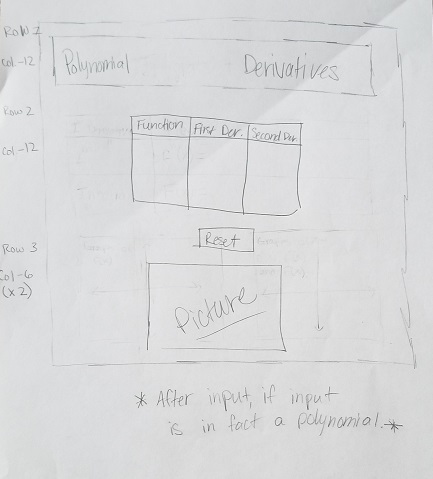 Row 1
Col-12
Polynomial Derivatives
Row 2
Col-12
Function First Der. Second Der.
Row 3
Reset
Col-6
(x2)
Picture
* After input, if input
is in fact a polynomial.*